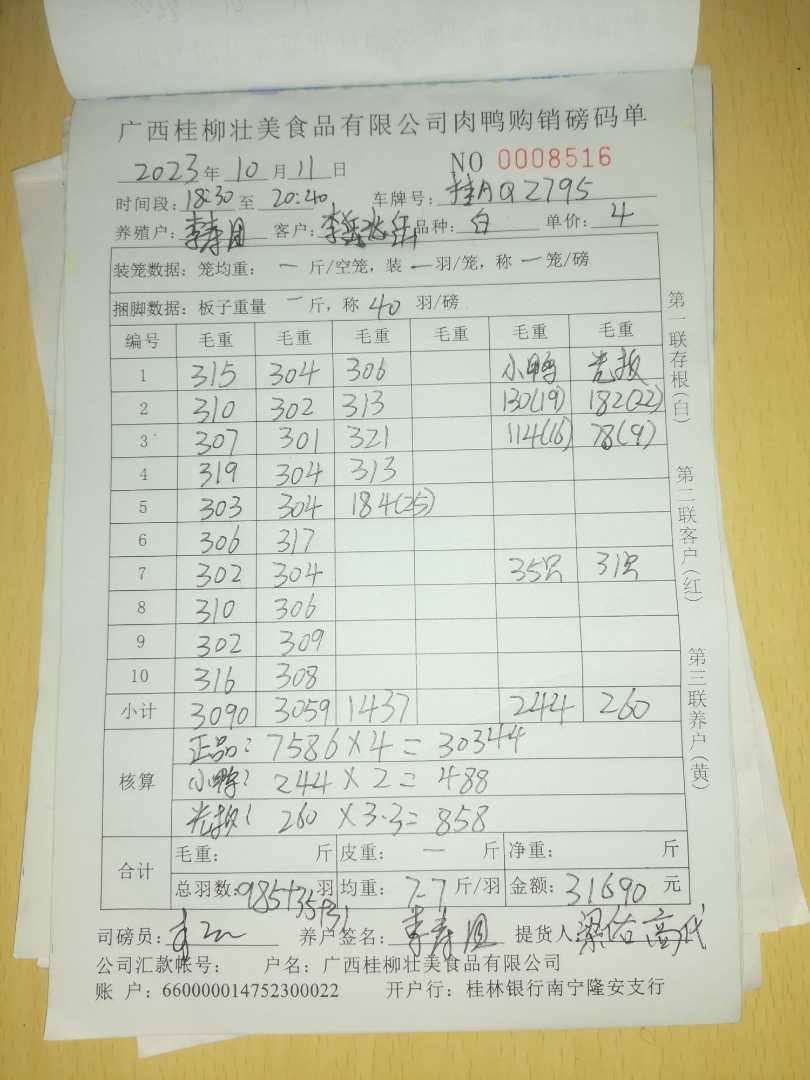 广西桂柳壮美食品有限公司肉鸭购销磅码单
2023年 10月 11日 NO 0008516
时间段: 18:30 至 20:40 车牌号: 桂AQ2795
养殖户: 李寿月 客户: 品种: 白 单价: 4
装笼数据: 笼均重: 一 斤/空笼, 装 一 羽/笼, 称 一 笼/磅
捆脚数据: 板子重量 一 斤, 称 40 羽/磅
编号 毛重 毛重 毛重 毛重 毛重 毛重
1 315 304 306 小鸭 光板
2 310 302 313 130(19) 182(22)
3 307 301 321 114(16) 78(9)
4 319 304 313
5 303 304 184(25)
6 306 317
7 302 304 35只 31只
8 310 306
9 302 309
10 316 308
小计 3090 3059 1437 244 260
核算
正品: 7586×4=30344
小鸭: 244×2=488
光板: 260×3.3=858
合计
毛重: 斤 皮重: 一 斤 净重: 斤
总羽数: 985+35+31 羽 均重: 7.7 斤/羽 金额: 31690 元
司磅员: 养户签名: 李寿月 提货人 梁佑高代
公司汇款帐号: 户名: 广西桂柳壮美食品有限公司
账 户: 660000014752300022 开户行: 桂林银行南宁隆安支行
第一联存根(白)
第二联客户(红)
第三联养户(黄)